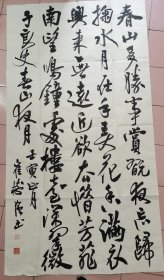 春山多勝事賞翫夜忘歸
掬水月在手弄花香滿衣
興來無遠近欲去惜芳菲
南望鳴鐘處樓臺深翠微
于良史春山夜月 壬寅